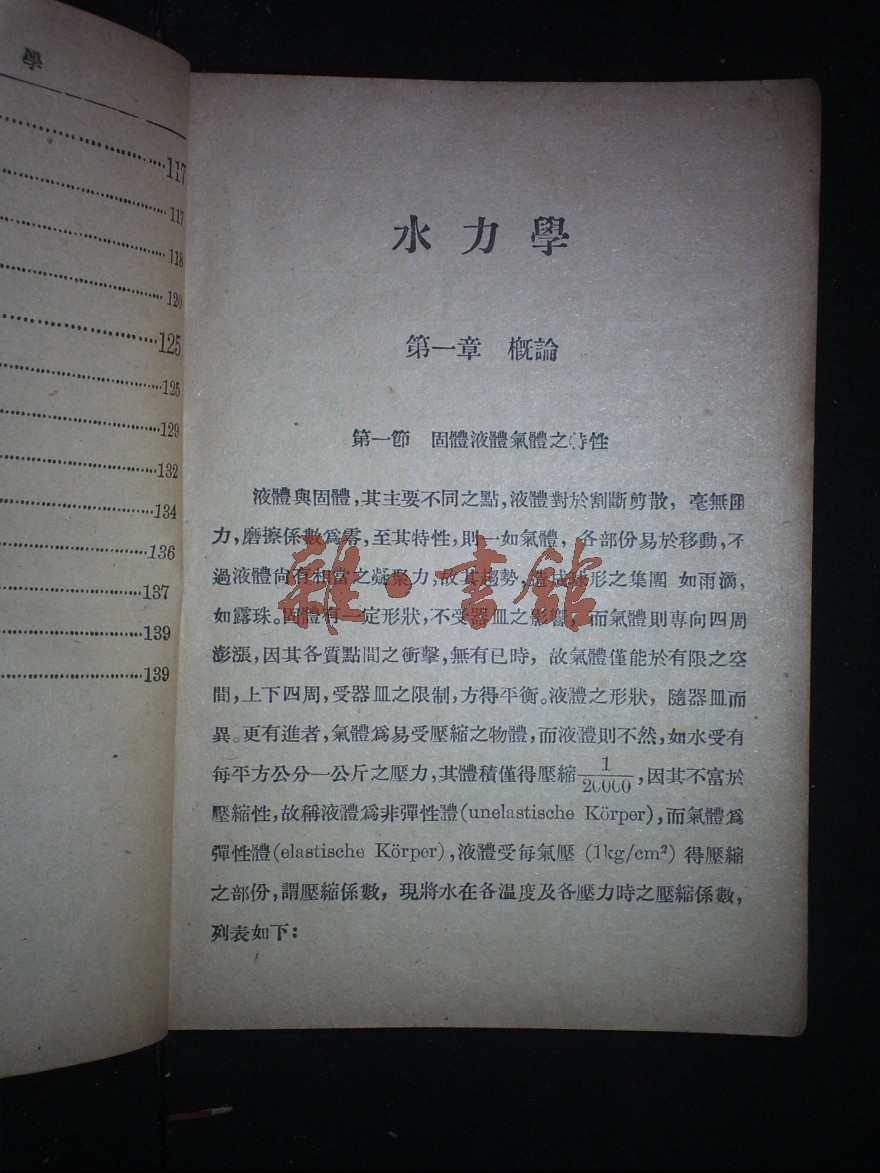 學
117
117
118
120
125
125
129
132
134
136
137
139
139
水力學
第一章 概論
第一節 固體液體氣體之特性
液體與固體,其主要不同之點,液體對於割斷剪散,毫無團
力,磨擦係數爲零,至其特性,則一如氣體,各部份易於移動,不
過液體尙有相當之凝聚力,故其趨勢,造成球形之集團 如雨滴,
如露珠。固體有一定形狀,不受器皿之影響,而氣體則專向四周
澎漲,因其各質點間之衝擊,無有已時,故氣體僅能於有限之空
間,上下四周,受器皿之限制,方得平衡。液體之形狀,隨器皿而
異。更有進者,氣體爲易受壓縮之物體,而液體則不然,如水受有
每平方公分一公斤之壓力,其體積僅得壓縮1/20000,因其不富於
壓縮性,故稱液體爲非彈性體(unelastische Körper),而氣體爲
彈性體(elastische Körper),液體受每氣壓 (1kg/cm²) 得壓縮
之部份,謂壓縮係數,現將水在各温度及各壓力時之壓縮係數,
列表如下:
雜·書館